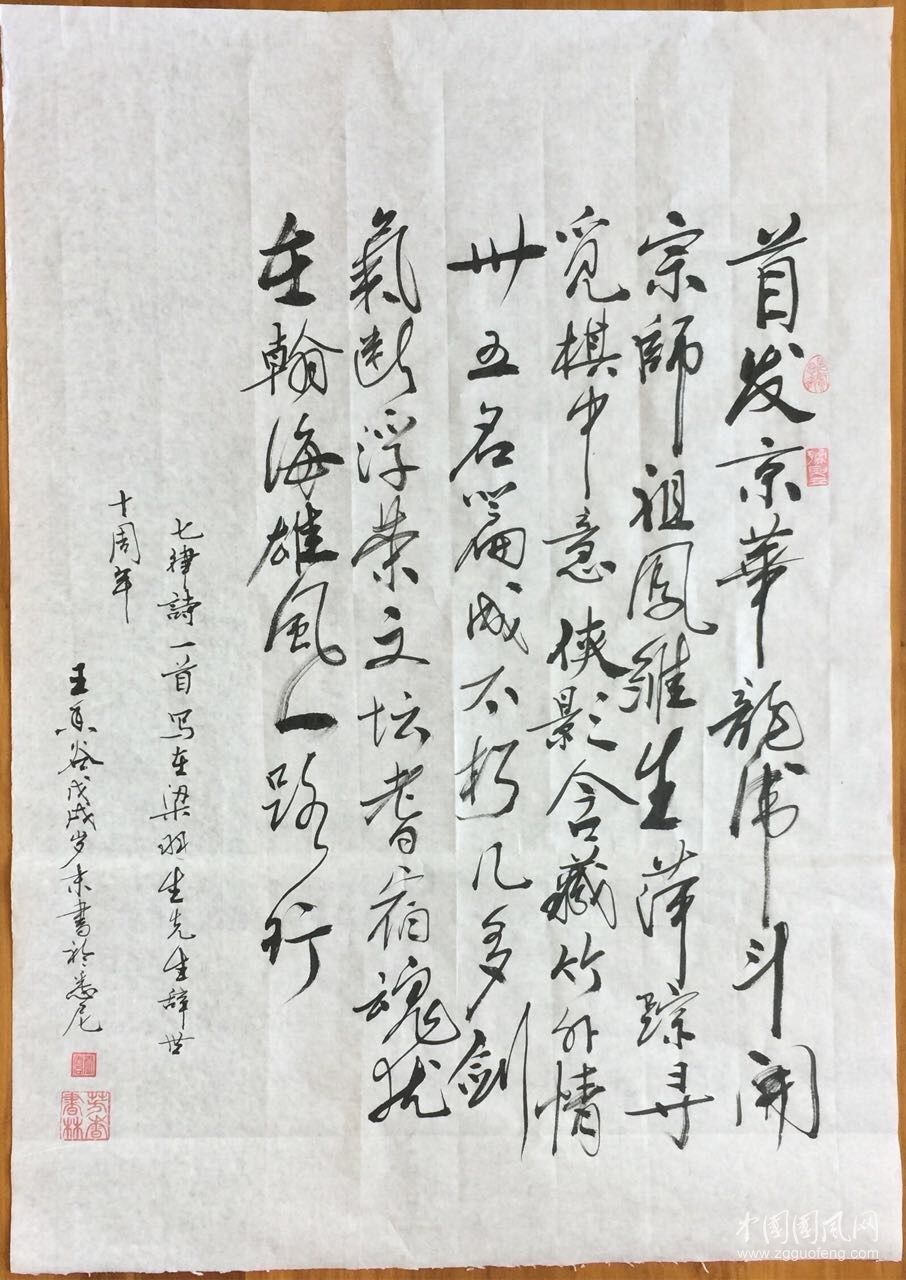 首发京華龍虎斗開
宗師祖鳳雏生萍踪寻
覓棋中意侠影含藏竹外情
卅五名篇成不朽几多劍
氣断浮荣文坛耆宿魂犹
在翰海雄风一路行
七律詩一首写在梁羽生先生辞世
十周年
王 谷戊戌岁末書於悉尼
芳香書林
中国國风网
www.zgguofeng.com